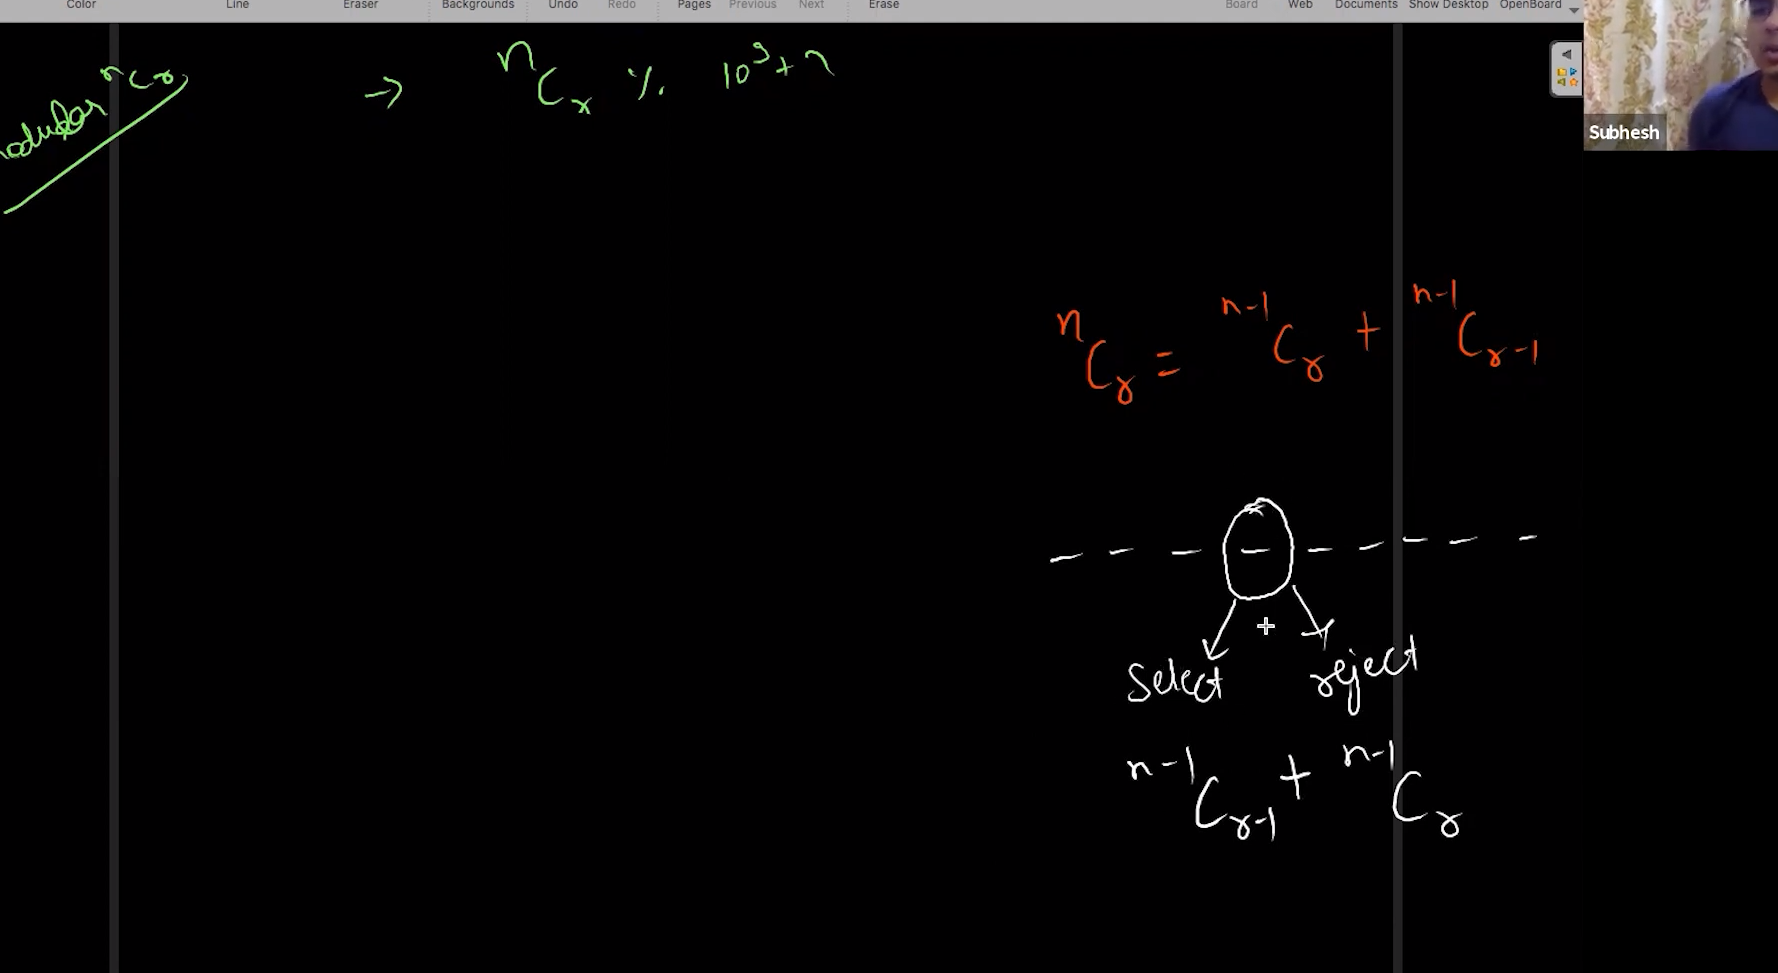 Color Line Eraser Backgrounds Undo Redo Pages Previous Next Erase Board Web Documents Show Desktop OpenBoard
Subhesh
odular nCr
→ nCr % 10^9+7
nCr = n-1Cr + n-1Cr-1
Select reject
n-1Cr-1 + n-1Cr